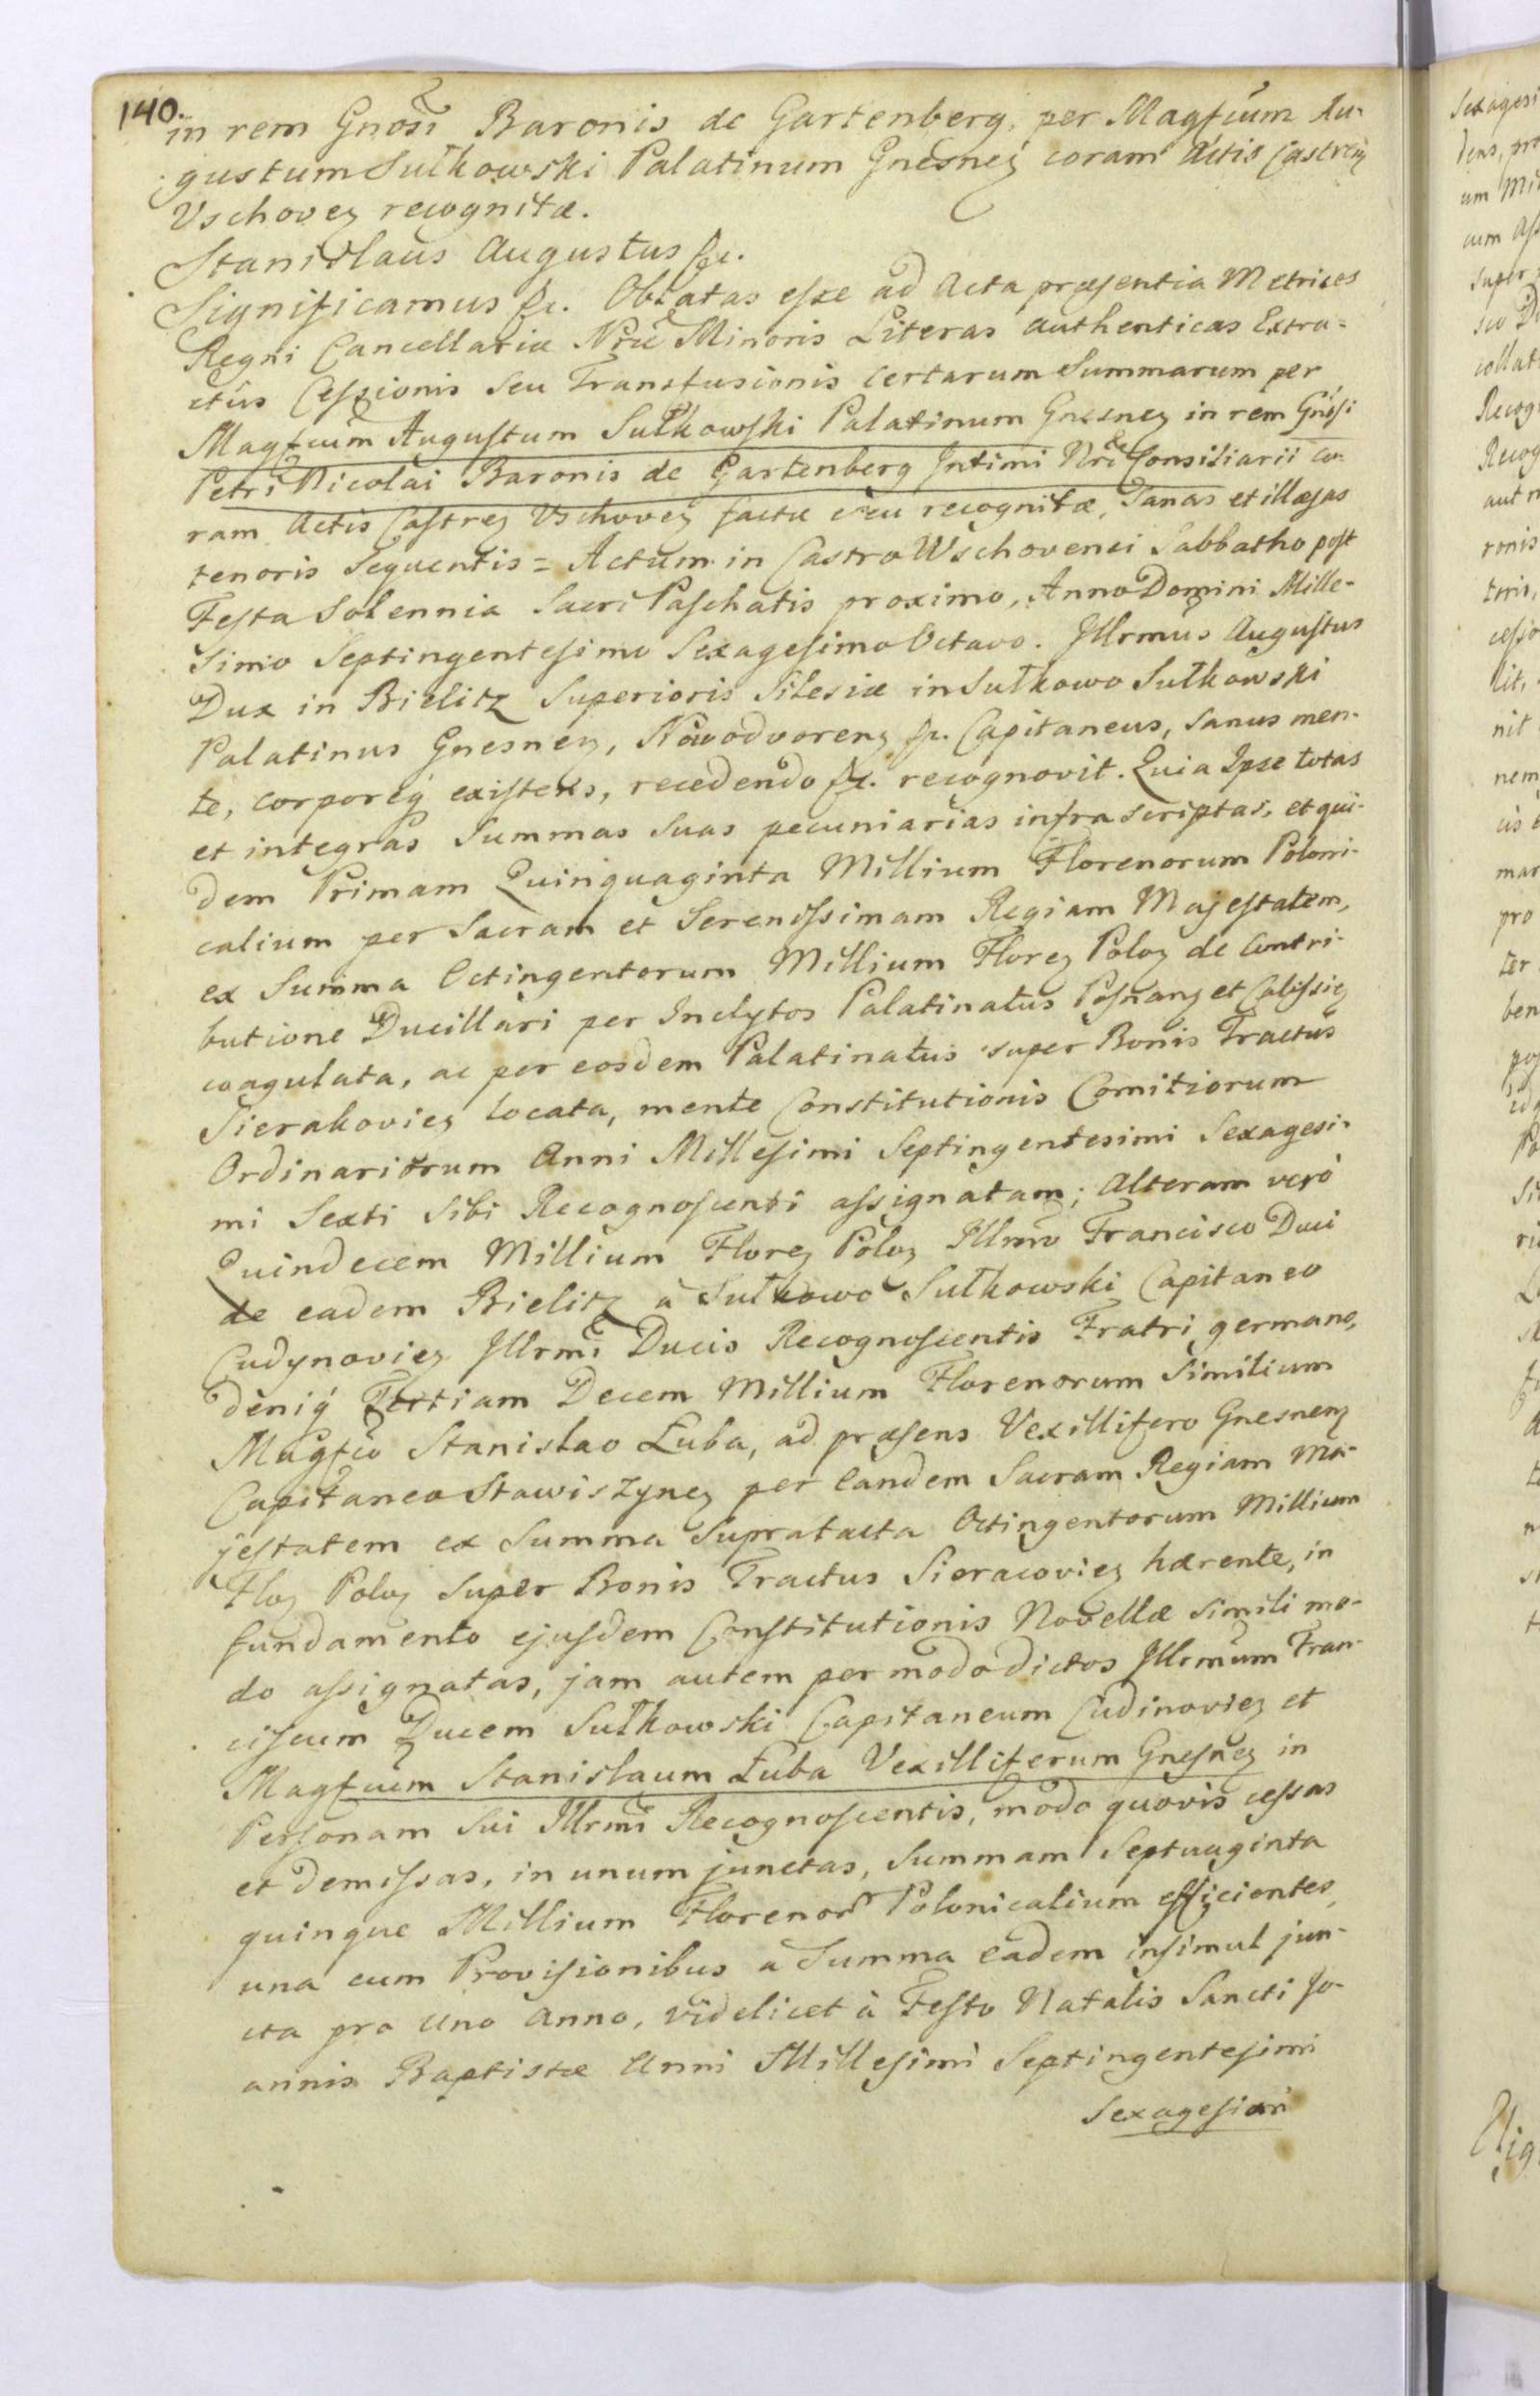 140.
in rem Gnosi Baronis de Gartenberg, per Magfcum Au-
gustum Sułkowski Palatinum Gnesnen coram Actis Castren
Vschoven recognitæ.
Stanislaus Augustus &c.
Significamus &c. Oblatas esse ad Acta præsentia Metrices
Regni Cancellariæ Nræ Minoris Literas authenticas Extra-
ctus Cessionis seu Transfusionis certarum Summarum per
Magfcum Augustum Sułkowski Palatinum Gnesnen in rem Gnosi
Petri Nicolai Baronis de Gartenberg Intimi Nri Consiliarii co-
ram Actis Castren Vschoven factæ seu recognitæ, Sanas et illæsas
tenoris sequentis = Actum in Castro Wschovensi Sabbatho post
Festa Solennia Sacri Paschatis proximo, Anno Domini Mille-
simo Septingentesimo Sexagesimo Octavo. Illrmus Augustus
Dux in Bielitz Superioris Silesiæ in Sułkowo Sułkowski
Palatinus Gnesnen, Nowodvoren &c. Capitaneus, sanus men-
te, corporeq existens, recedendo &c. recognovit. Quia Ipse totas
et integras Summas suas pecuniarias infra scriptas, et qui-
dem Primam Quinquaginta Millium Florenorum Poloni-
calium per Sacram et Serenissimam Regiam Majestatem,
ex Summa Octingentorum Millium Floren Polon de Contri-
butione Ducillari per Inclytos Palatinatus Posnan et Calissien
coagulata, ac per eosdem Palatinatus super Bonis Tractus
Sierakovien locata, mente Constitutionis Comitiorum
Ordinariorum Anni Millesimi Septingentesimi Sexagesi-
mi Sexti sibi Recognoscenti assignatam; Alteram vero
Quindecem Millium Floren Polon Illrmo Francisco Duci
de eadem Bielitz a Sułkowo Sułkowski Capitaneo
Cudynovien Illrmi Ducis Recognoscentis Fratri germano,
deniq Tertiam Decem Millium Florenorum Similium
Magfco Stanislao Łuba, ad præsens Vexillifero Gnesnen
Capitaneo Stawiszynen per eandem Sacram Regiam Ma-
jestatem ex Summa Supratacta Octingentorum Millium
Flon Polon super Bonis Tractus Sieracovien hærente, in
fundamento ejusdem Constitutionis Novellæ simili mo-
do assignatas, jam autem per modo dictos Illrmum Fran-
ciscum Ducem Sułkowski Capitaneum Cudinovien et
Magfcum Stanislaum Łuba Vexilliferum Gnesnen in
Personam Sui Illrmi Recognoscentis, modo quovis cessas
et demissas, in unum junctas, Summam Septuaginta
quinque Millium Florenor Polonicalium efficientes,
una cum Provisionibus a Summa eadem insimul jun-
cta pro uno Anno, videlicet à Festo Natalis Sancti Jo-
annis Baptistæ Anni Millesimi Septingentesimi
Sexagesimi